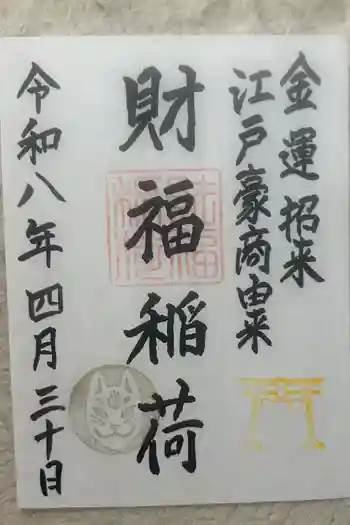 金運招来
江戸豪商由来
財福稲荷
令和八年四月三十日